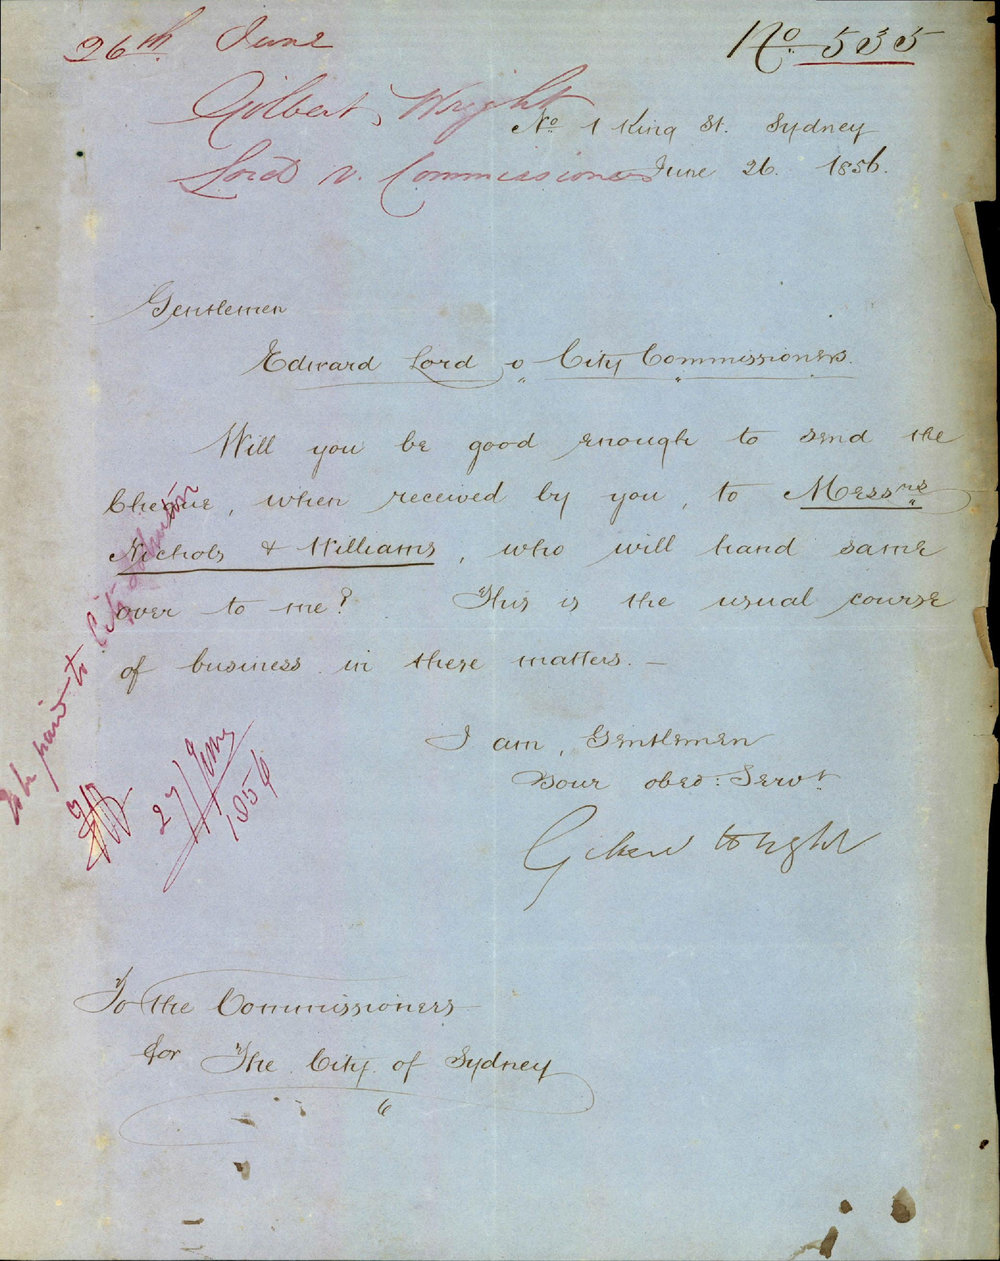 26th June
No. 535
Gilbert Wright
No 1 King St. Sydney
Lord v. Commissioners
June 26. 1856.
Gentlemen
Edward Lord v City Commissioners.
Will you be good enough to send the
Cheque, when received by you, to Messrs
Nichols & Williams, who will hand same
over to me? This is the usual course
of business in these matters. —
I am, Gentlemen
Your obed: Servt
Gilbert Wright
To the Commissioners
for The City of Sydney
paid to City
27 June
1856